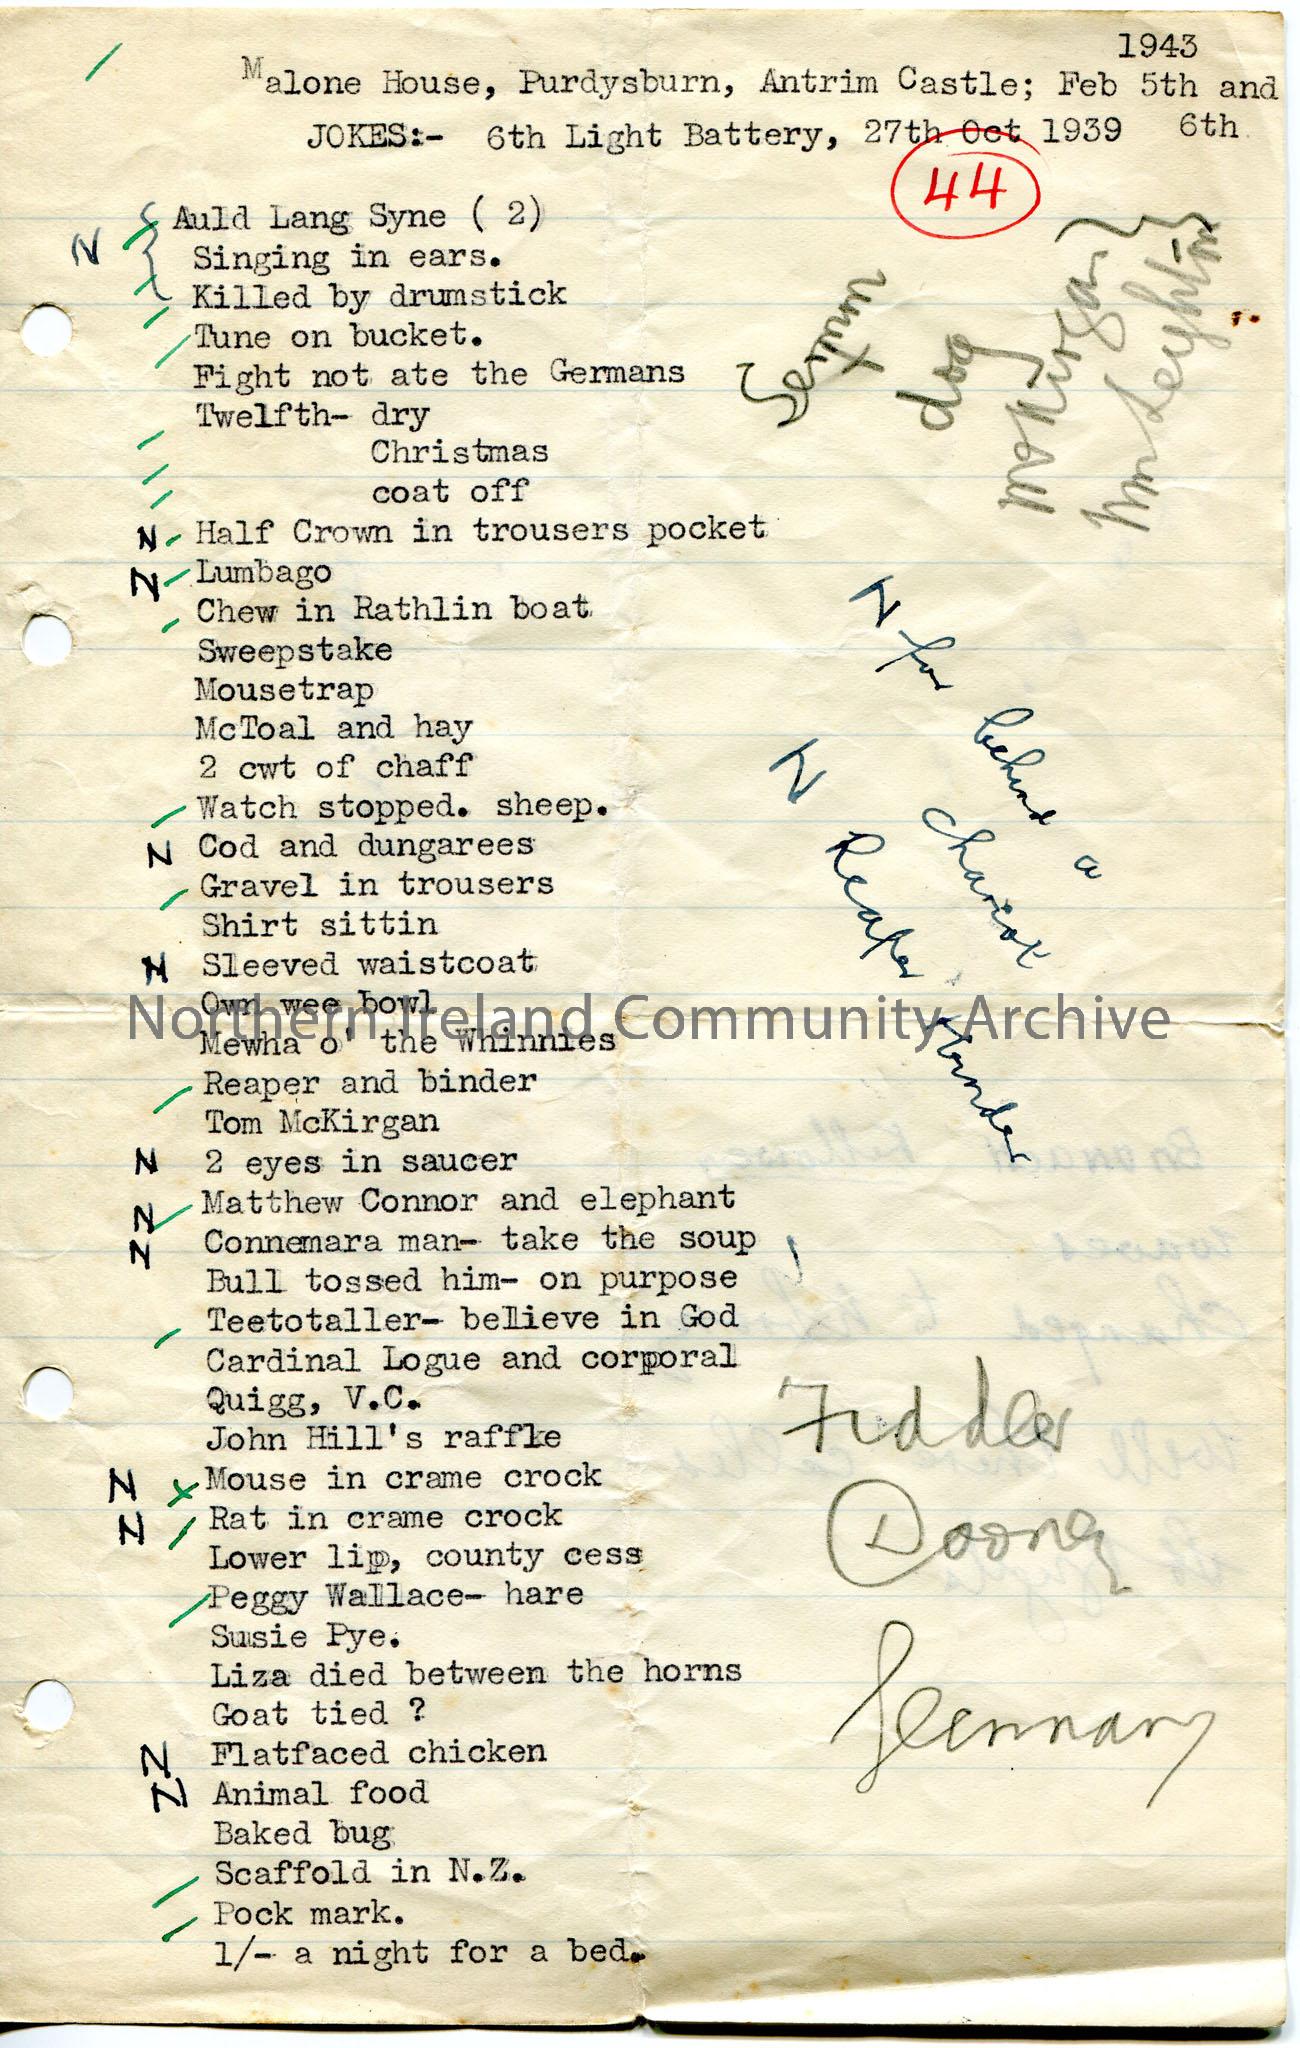 1943
Malone House, Purdysburn, Antrim Castle; Feb 5th and
JOKES:- 6th Light Battery, 27th Oct 1939 6th
44
Auld Lang Syne ( 2)
N
Singing in ears.
Killed by drumstick
Tune on bucket.
Fight not ate the Germans
Twelfth- dry
Christmas
coat off
N Half Crown in trousers pocket
N Lumbago
Chew in Rathlin boat
Sweepstake
Mousetrap
McToal and hay
2 cwt of chaff
Watch stopped. sheep.
N Cod and dungarees
Gravel in trousers
Shirt sittin
N Sleeved waistcoat
Own wee bowl
Mewha o' the Whinnies
Reaper and binder
Tom McKirgan
N 2 eyes in saucer
N Matthew Connor and elephant
N Connemara man- take the soup
Bull tossed him- on purpose
Teetotaller- believe in God
Cardinal Logue and corporal
Quigg, V.C.
John Hill's raffle
N x Mouse in crame crock
N Rat in crame crock
Lower lip, county cess
Peggy Wallace- hare
Susie Pye.
Liza died between the horns
Goat tied ?
N Flatfaced chicken
N Animal food
Baked bug
Scaffold in N.Z.
Pock mark.
1/- a night for a bed.
Sermon
dog
McKirgan
Wm Leighton
N for behind a
chariot
N Reaper + binder
Fiddler
Dooney
Northern Ireland Community Archive